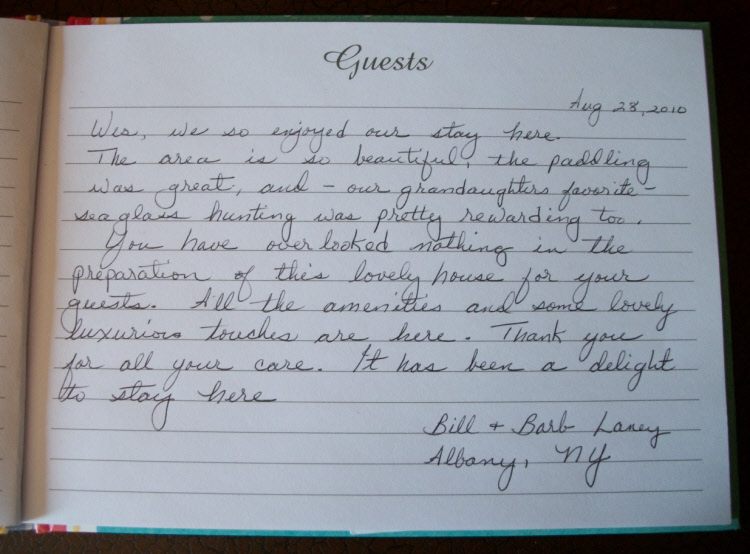 Guests
Aug 28, 2010
Wes, we so enjoyed our stay here.
The area is so beautiful, the paddling
was great, and - our grandaughters favorite -
seaglass hunting was pretty rewarding too.
You have overlooked nothing in the
preparation of this lovely house for your
guests. All the amenities and some lovely
luxurious touches are here. Thank you
for all your care. It has been a delight
to stay here
Bill + Barb Laney
Albany, NY